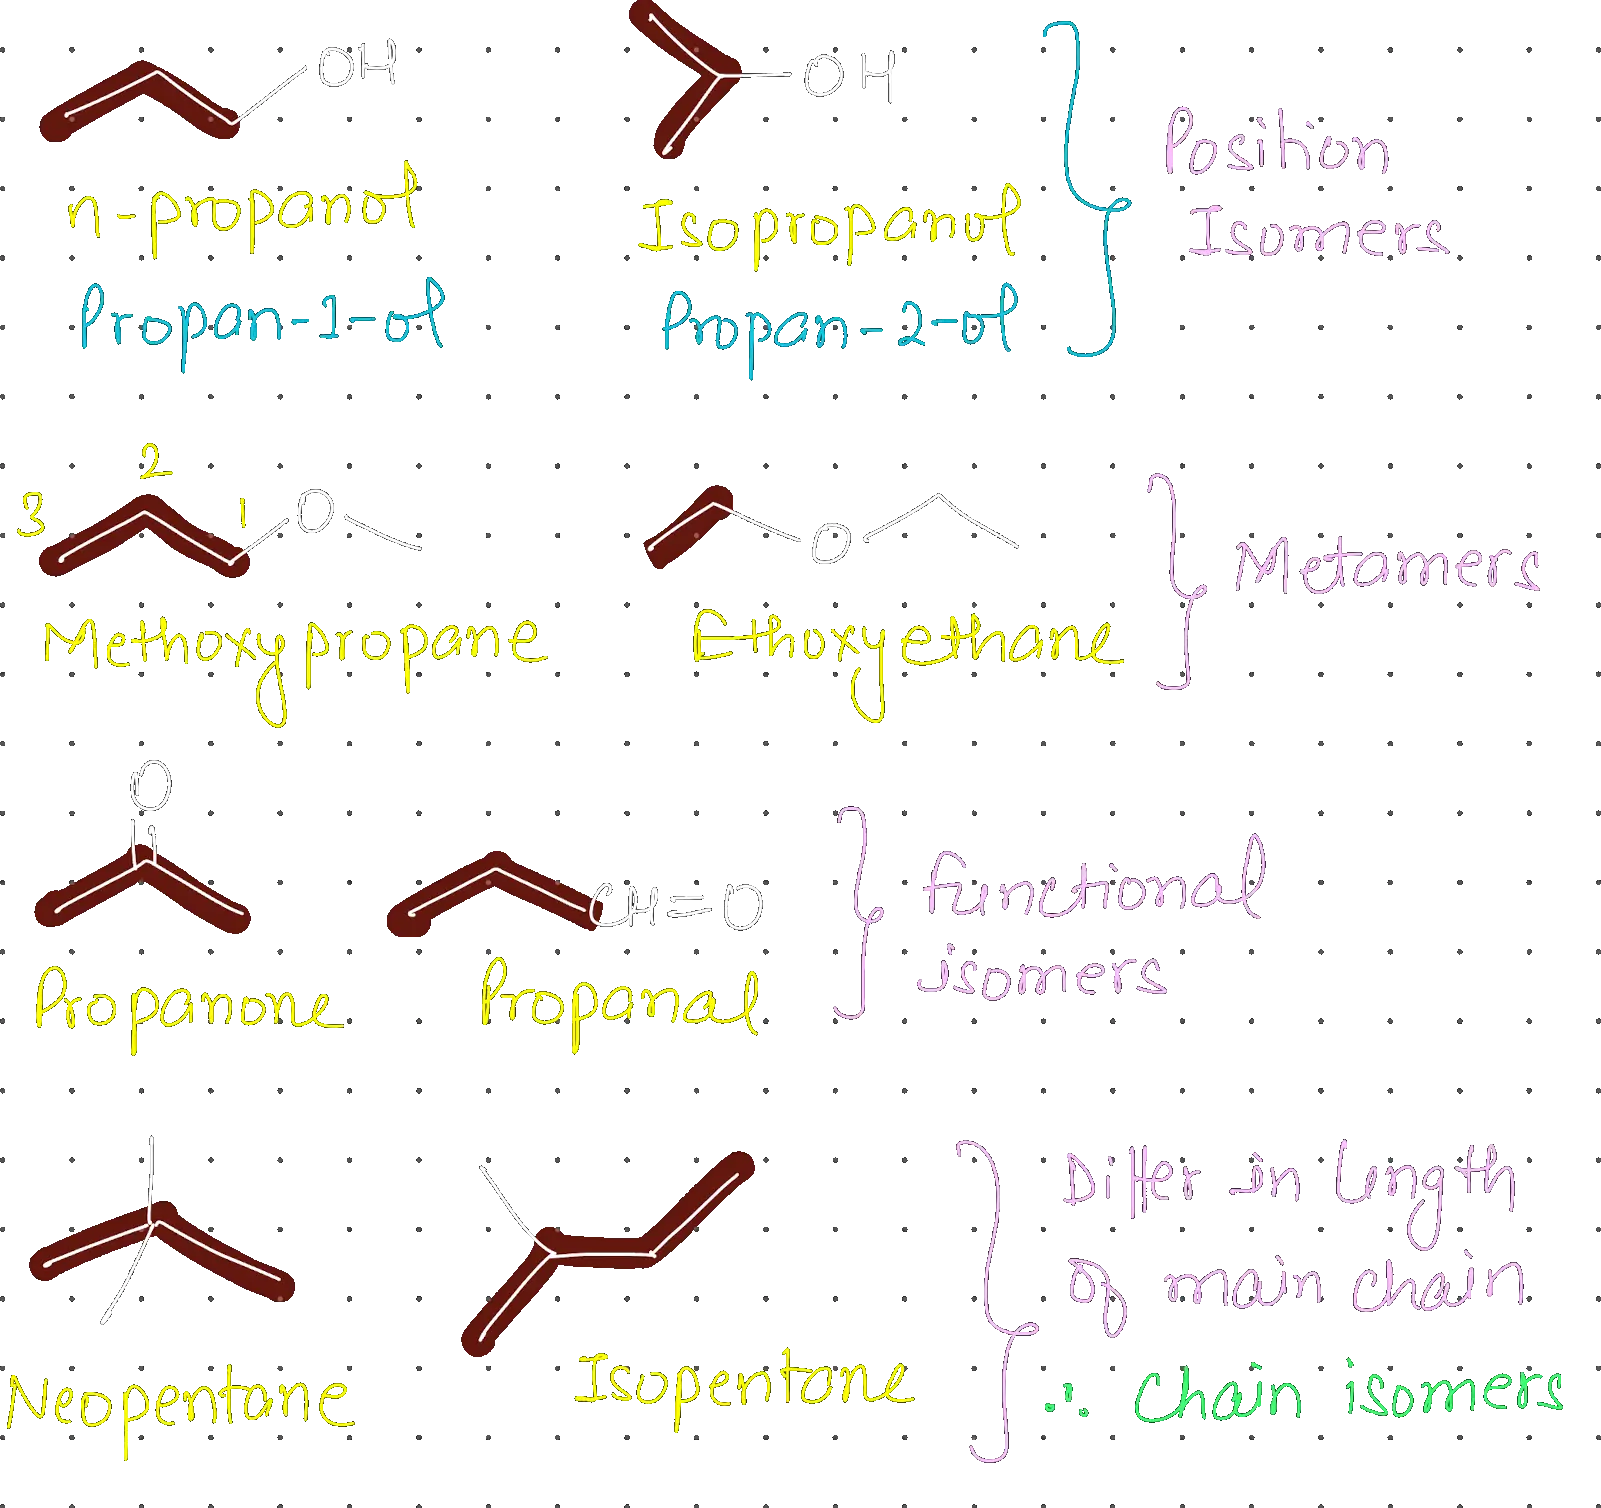 OH
OH
n-propanol
Isopropanol
Position
Isomers
Propan-1-ol
Propan-2-ol
3 2 1 O
O
Methoxypropane
Ethoxyethane
Metamers
O
CH=O
Propanone
Propanal
functional
isomers
Neopentane
Isopentane
Differ in length
of main chain
∴ Chain isomers